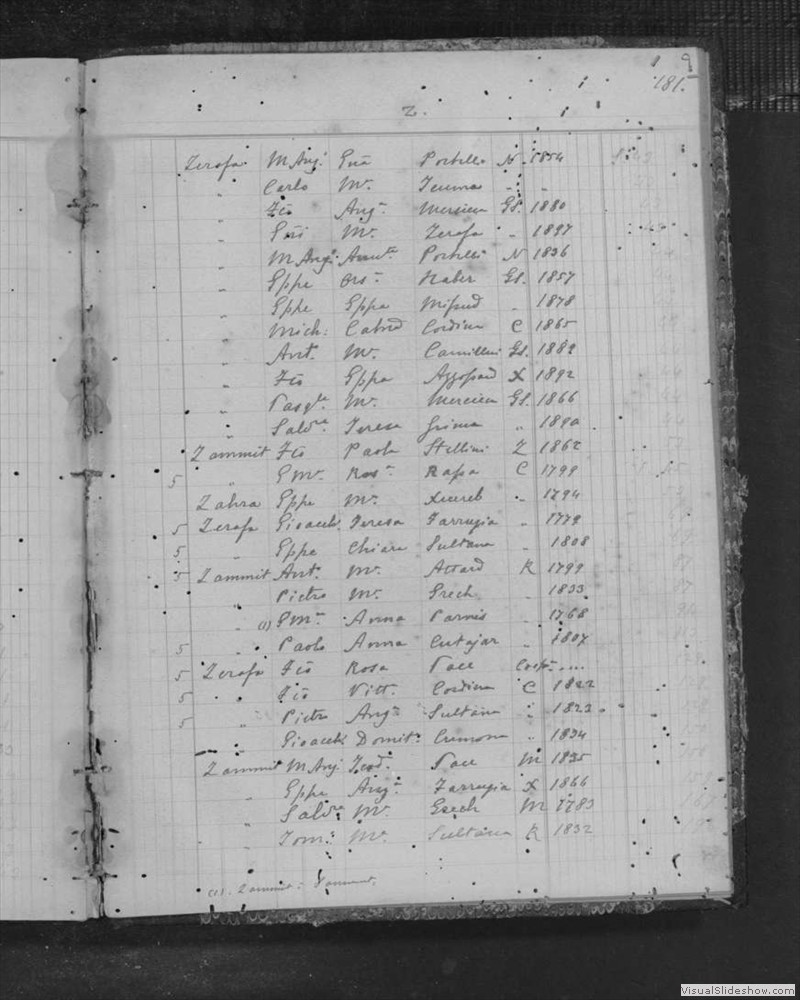 9
181.
Z.
Zerafa M Ang. Gua Portelli N 1854
" Carlo Mª. "
" Fco Angª. Mercieca Gs. 1880
" Gni Mª. Zerafa " 1897
" M Ang. Portelli N 1836
" Gppe Ors. Gs. 1857
" Gppe Gppa Mifsud " 1878
" Mich: Cordina C 1865
" Ant. Mª. Camilleri Gs. 1889
" Fco Gppa Azzopard X 1892
" Pasqle Mª. Mercieca Gs. 1866
" Salvre Teresa Grima " 1890
Zammit Fco Paola Stellini Z 1862
5 " G Mª. Rosª. C 1799
Zahra Gppe Mª. Xuereb " 1794
5 Zerafa Gioacch. Teresa Farrugia " 1779
5 " Gppe Chiara Sultana " 1808
5 Zammit Ant. Mª. Attard K 1799
" Pietro Mª. Grech " 1833
" (1) G Mª Anna Parnis " 1768
5 " Paolo Anna Cutajar " 1807
5 Zerafa Fco Rosa Pace ....
5 " Fco Vitt. Cordina C 1822
5 " Pietro Angª Sultana " 1823
" Gioacch Domitª Cremona " 1834
Zammit M Ang. Teod. Pace M 1835
" Gppe Angª. Farrugia X 1866
" Salvre Mª. Grech M 1783
" Tom: Mª. Sultana K 1832
(1). Zammit:
VisualSlideshow.com